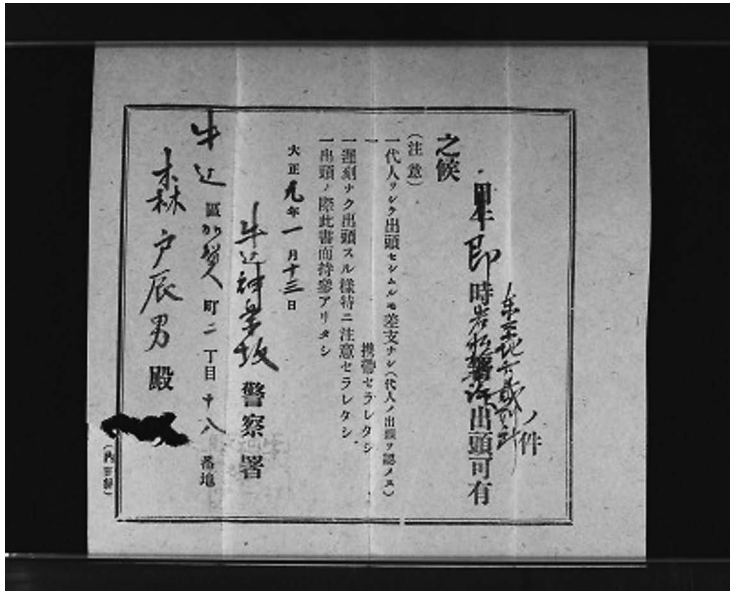 東京地方裁判所ノ件
即時出頭可有
之候
(注意)
一代人ヲシテ出頭セシムルモ差支ナシ(代人ノ出頭ヲ認メス)
一 携帶セラレタシ
一遲刻ナク出頭スル樣特ニ注意セラレタシ
一出頭ノ際此書面持參アリタシ
大正九年一月十三日
牛込神樂坂警察署
牛込區加賀町二丁目十八番地
森戸辰男殿